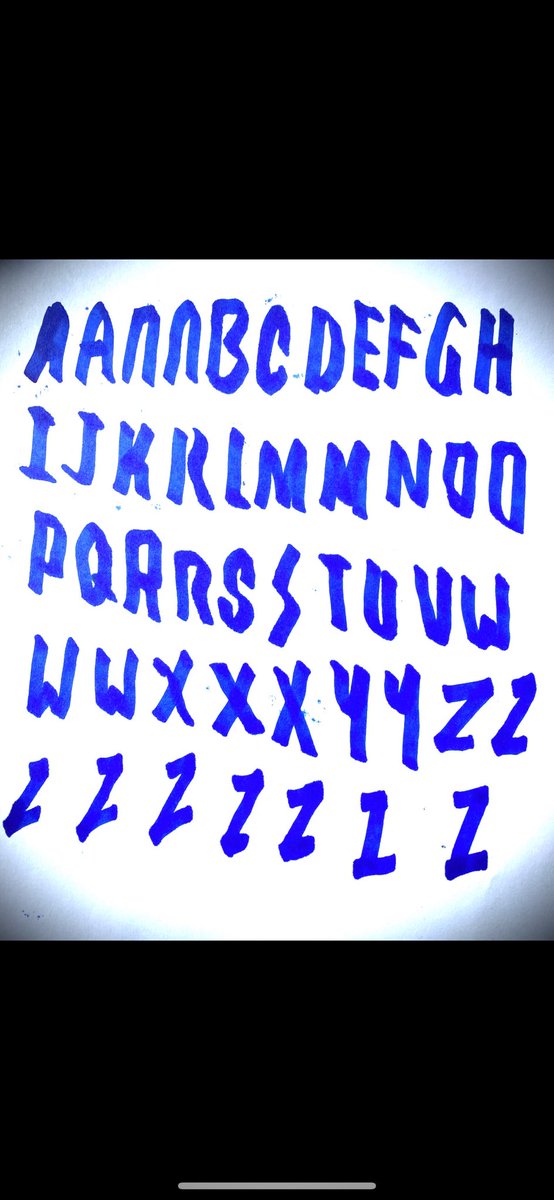 AAAABCDEFGH
IJKKLMMNOO
PQRRSSTUVW
WWXXXYYZZ
ZZZZZZZ